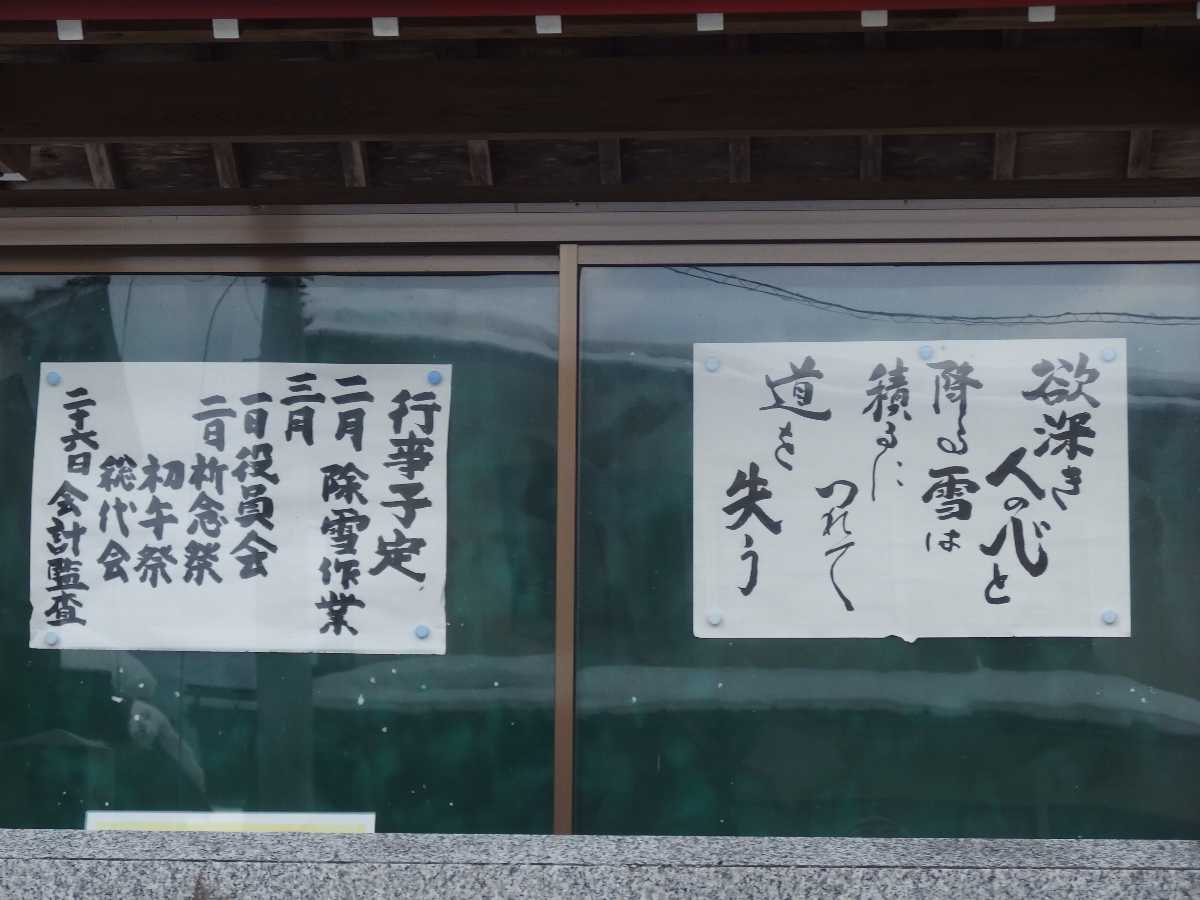 欲深き
人の心と
降る雪は
積るに
つれて
道を
失う
行事予定
二月 除雪作業
三月
一日役員会
二日祈念祭
初午祭
総代会
二十六日会計監査